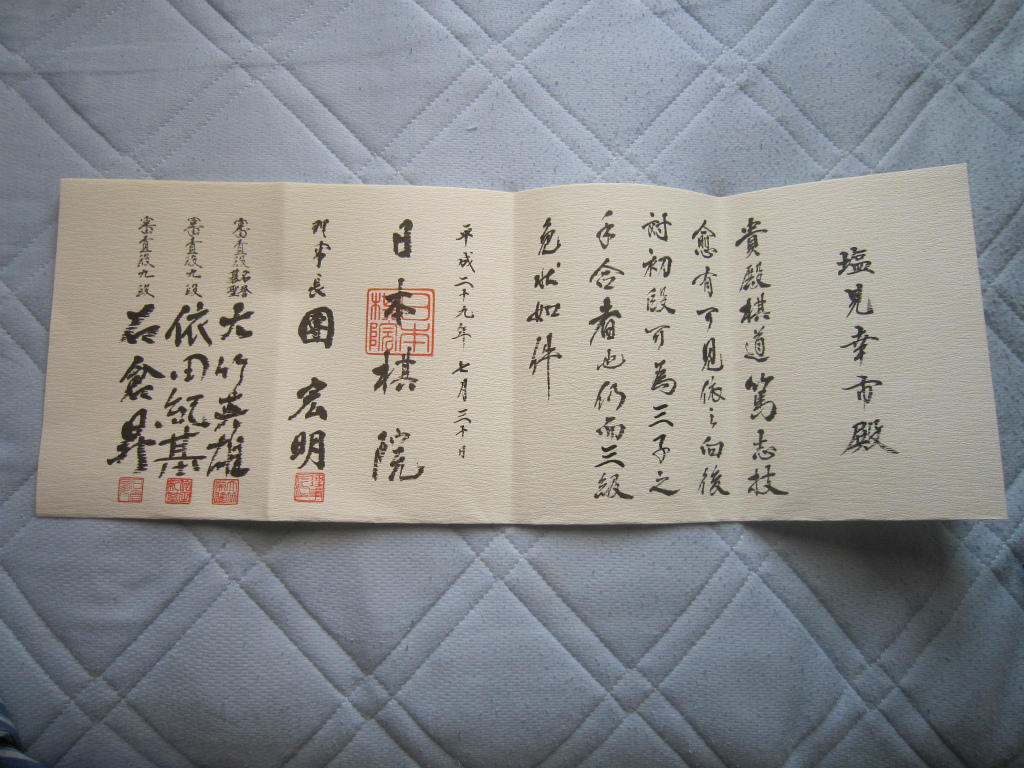 塩見幸市殿
貴殿棋道篤志技
愈有可見依之向後
対初段可為三子之
手合者也仍而三級
免状如件
平成二十九年七月三十日
日本棋院
日本棋院
理事長 團宏明
審査役名誉碁聖 大竹英雄
審査役九段 依田紀基
審査役九段 石倉昇